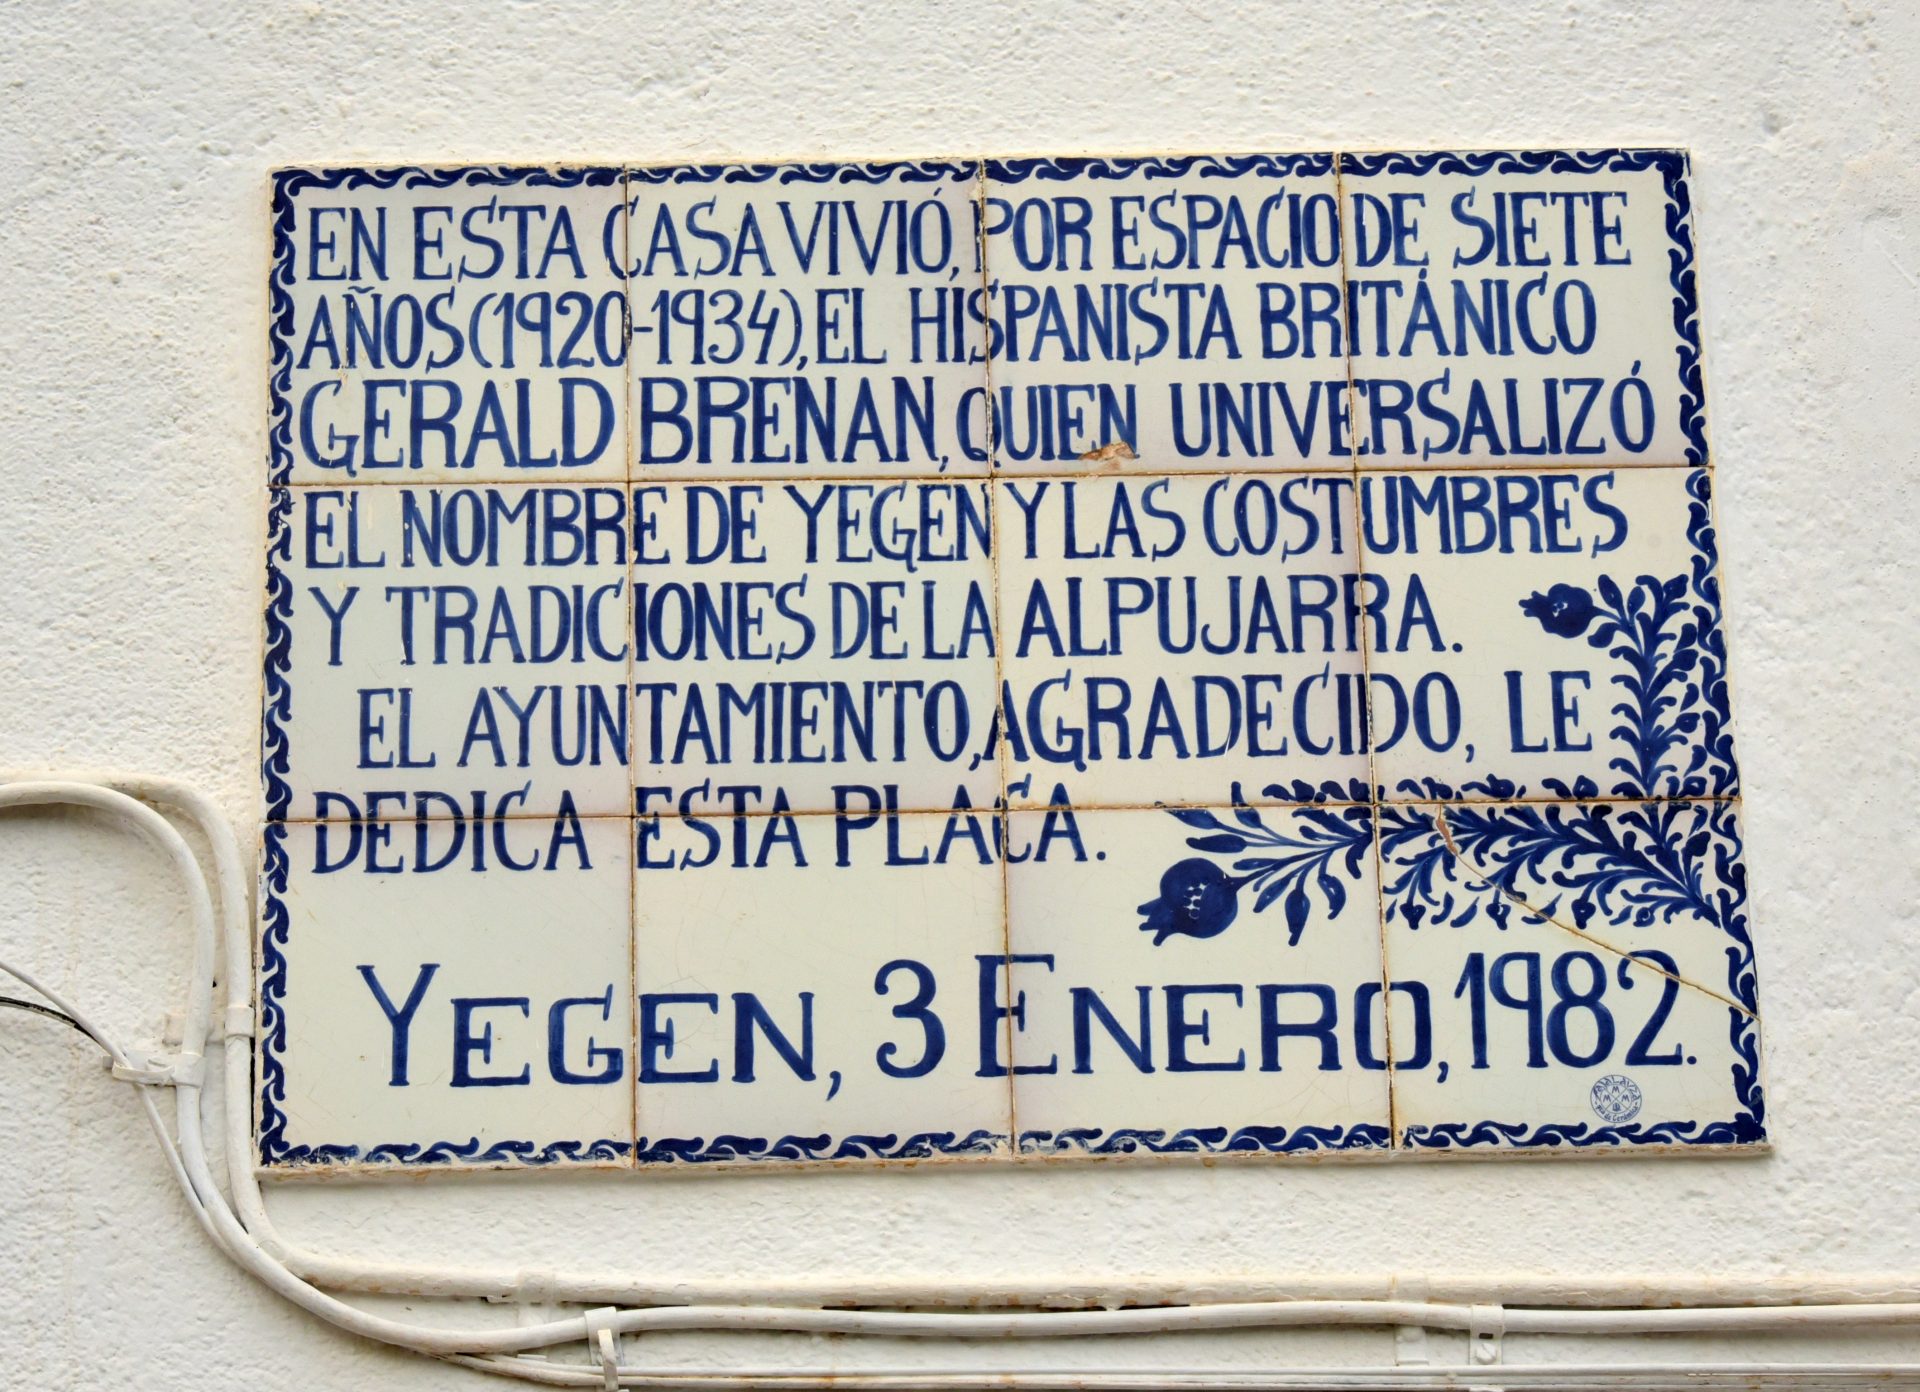 EN ESTA CASA VIVIÓ, POR ESPACIO DE SIETE
AÑOS (1920-1934), EL HISPANISTA BRITÁNICO
GERALD BRENAN, QUIEN UNIVERSALIZÓ
EL NOMBRE DE YEGEN Y LAS COSTUMBRES
Y TRADICIONES DE LA ALPUJARRA.
EL AYUNTAMIENTO, AGRADECIDO, LE
DEDICA ESTA PLACA.
YEGEN, 3 ENERO, 1982.